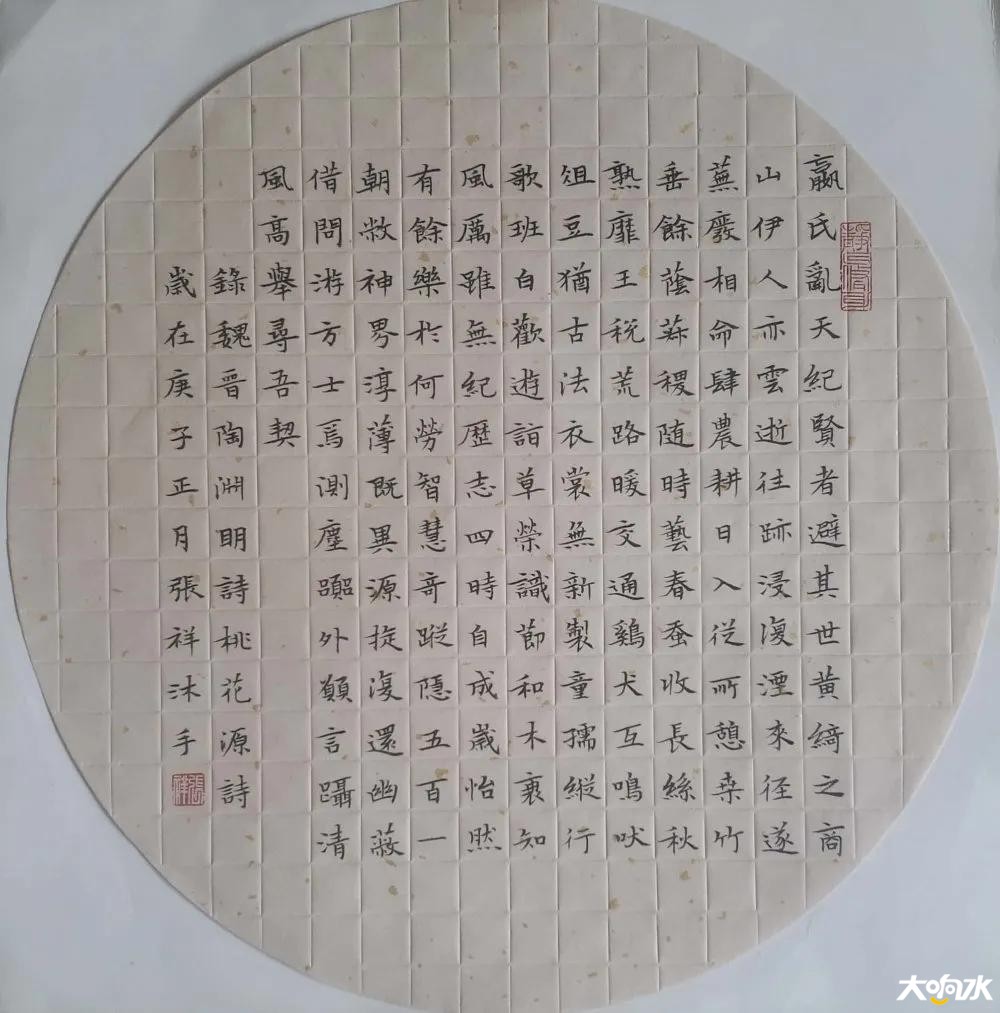 嬴氏亂天紀賢者避其世黃綺之商
山伊人亦雲逝往跡浸復湮來径遂
蕪廢相命肆農耕日入從所憩桑竹
垂餘蔭菽稷随時藝春蚕收長絲秋
熟靡王税荒路暖交通鷄犬互鳴吠
俎豆猶古法衣裳無新製童孺縱行
歌班白歡遊詣草榮識節和木衰知
風厲雖無紀歷志四時自成歲怡然
有餘樂於何勞智慧奇蹤隱五百一
朝敞神界淳薄既異源旋復還幽蔽
借問游方士焉測塵囂外願言躡清
風高舉尋吾契
錄魏晉陶淵明詩桃花源詩
歲在庚子正月張祥沐手
張祥
大响水